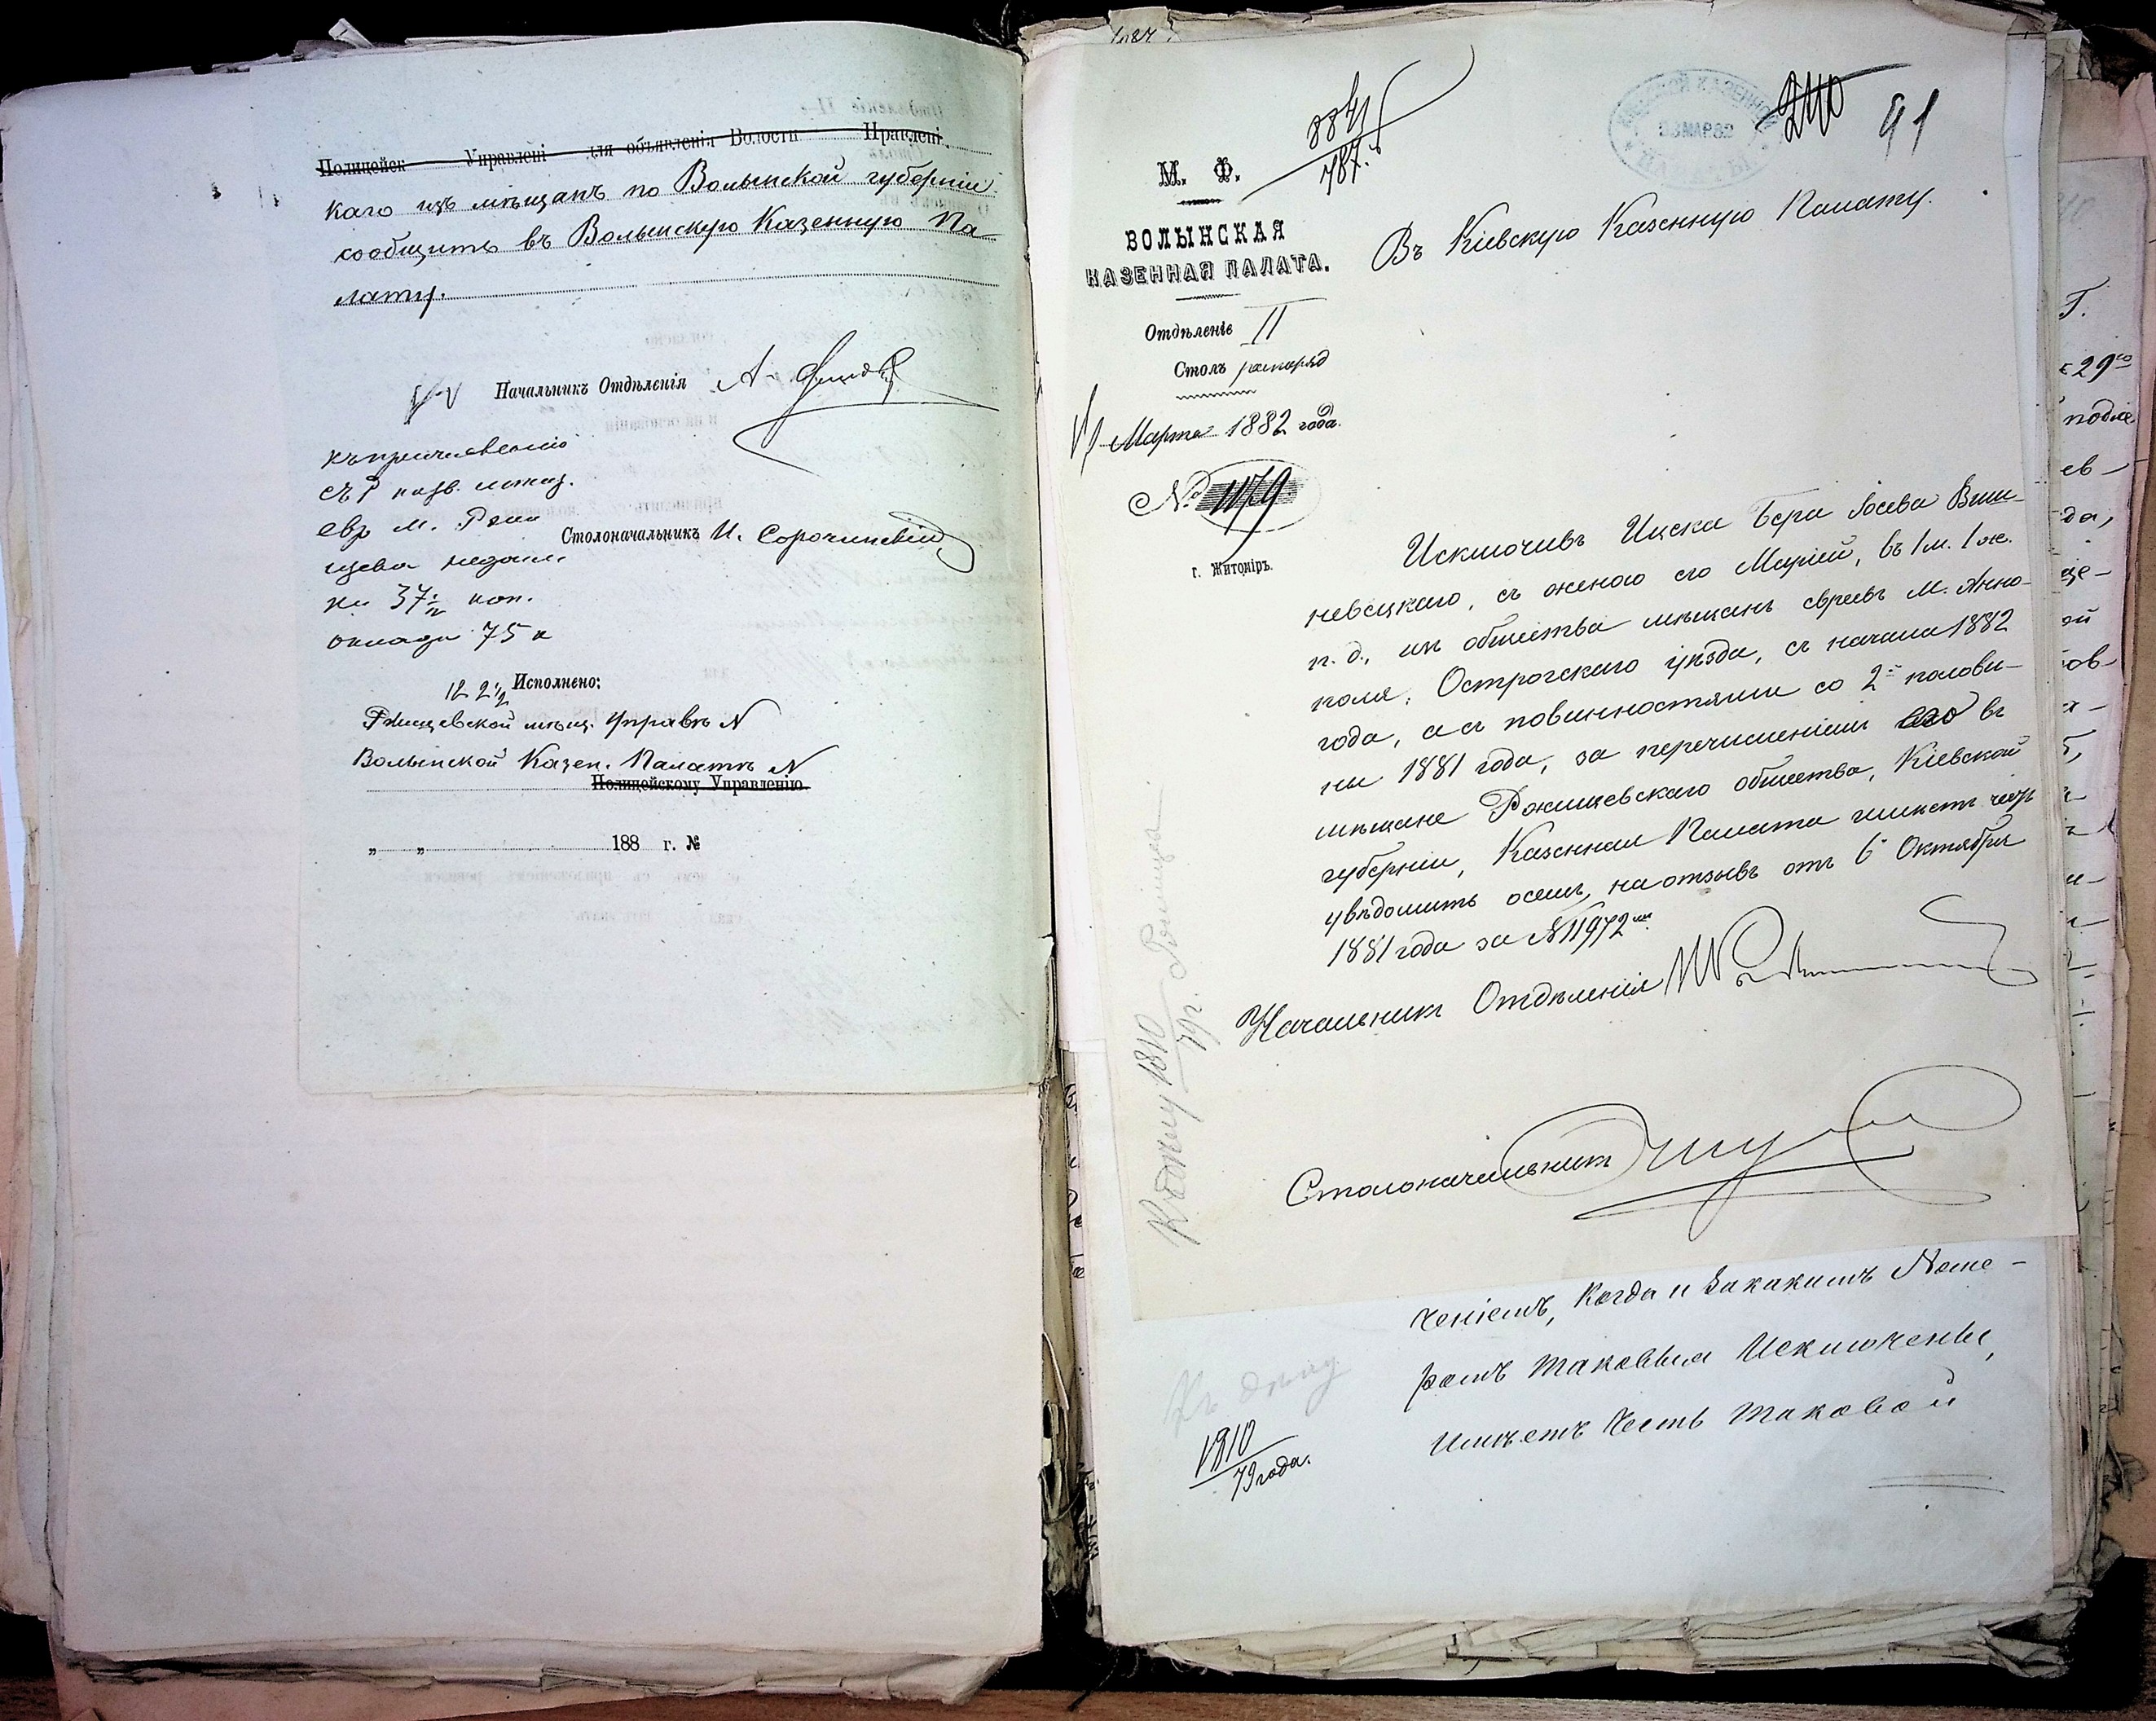 Полицейск Управлені для объявленія Волостн Правлені
каго изъ мѣщанъ по Волынской губерніи
сообщить въ Волынскую Казенную Па
лату.
Начальникъ Отдѣленія
къ причисленію
съ
евр м. Ржи
щева
на 37½ коп.
оклада 75 к
Столоначальникъ И. Сорочинскій
12 2½ Исполнено:
Ржищевской мѣщ. Управѣ N
Волынской Казен. Палатѣ N
Полицейскому Управленію.
„ „ 188 г. №
8841
787.
МАР 82
240
91
М. Ф.
ВОЛЫНСКАЯ
КАЗЕННАЯ ПАЛАТА.
Отдѣленіе II
Столъ
Марта 1882 года.
№ 1179
г. Житоміръ.
Въ Кіевскую Казенную Палату.
Исключивъ Ицска Бера Іосева Виш-
невецкаго, съ женою его Маріей, въ 1 м. 1 ж.
п. д., изъ общества мѣщанъ евреевъ м. Анно-
поля, Острогскаго уѣзда, съ начала 1882
года, а съ повинностями со 2й полови-
ны 1881 года, за перечисленіемъ его въ
мѣщане Ржищевскаго общества, Кіевской
губерніи, Казенная Палата имѣетъ честь
увѣдомить о семъ, на отзывъ отъ 6 Октября
1881 года за №11972мъ.
Начальникъ Отдѣленія
Столоначальникъ
Къ дѣлу 1810/79 г. Ржищева
ченіемъ, Когда и За какимъ Номе-
ромъ таковыя Исключены,
Имѣетъ Честь таковой
Къ дѣлу
1810
79 года.